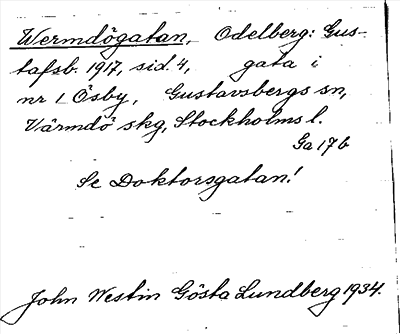 Wermdögatan, Odelberg: Gus-
tafsb. 1917, sid. 4, gata i
nr 1 Ösby, Gustavsbergs sn,
Värmdö skg, Stockholms l.
Ga 17 b
Se Doktorsgatan!
John Westin Gösta Lundberg 1934.